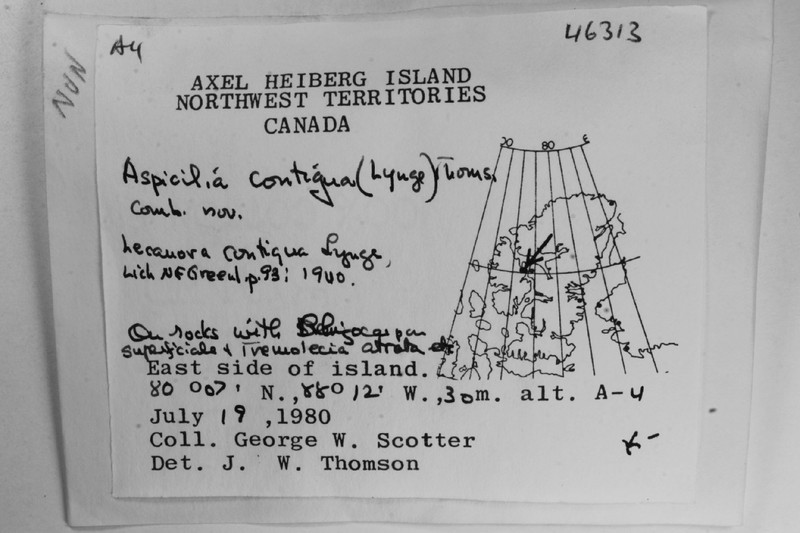 46313
A4
NUN
AXEL HEIBERG ISLAND
NORTHWEST TERRITORIES
CANADA
Aspicilia contigua (Lynge) Thoms.
Comb. nov.
Lecanora contigua Lynge,
Lich NE Greenl p.93: 1940.
80
On rocks with
superficialis & Tremolecia atrata
East side of island.
80 °07' N., 88° 12' W., 30m. alt. A-4
July 19 ,1980
Coll. George W. Scotter
K-
Det. J. W. Thomson